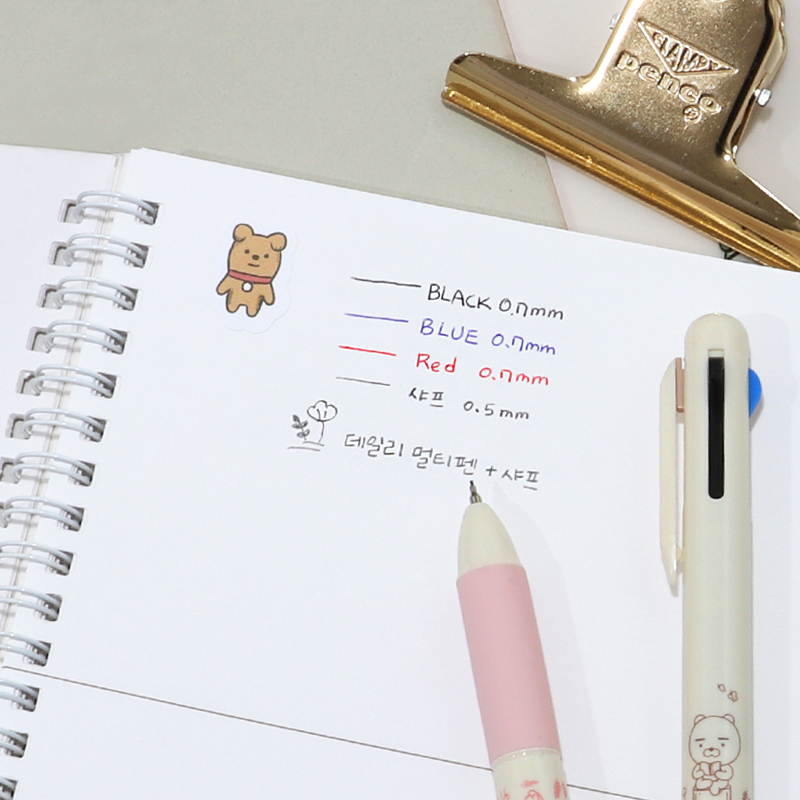 CLAMPY
penco
®
BLACK 0.7mm
BLUE 0.7mm
Red 0.7mm
샤프 0.5mm
데일리 멀티펜 + 샤프